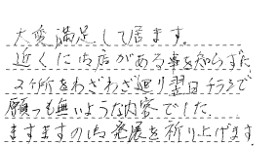 大変満足して居ます。
近くに御店がある事を知らずに
2ケ所をわざわざ廻り翌日チラシで
願っも無いような内容でした
ますますの御発展を祈り上げます